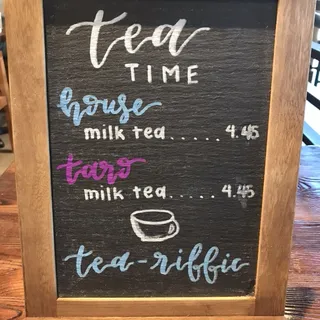 tea
TIME
house
milk tea..... 4.45
taro
milk tea..... 4.45
tea-riffic